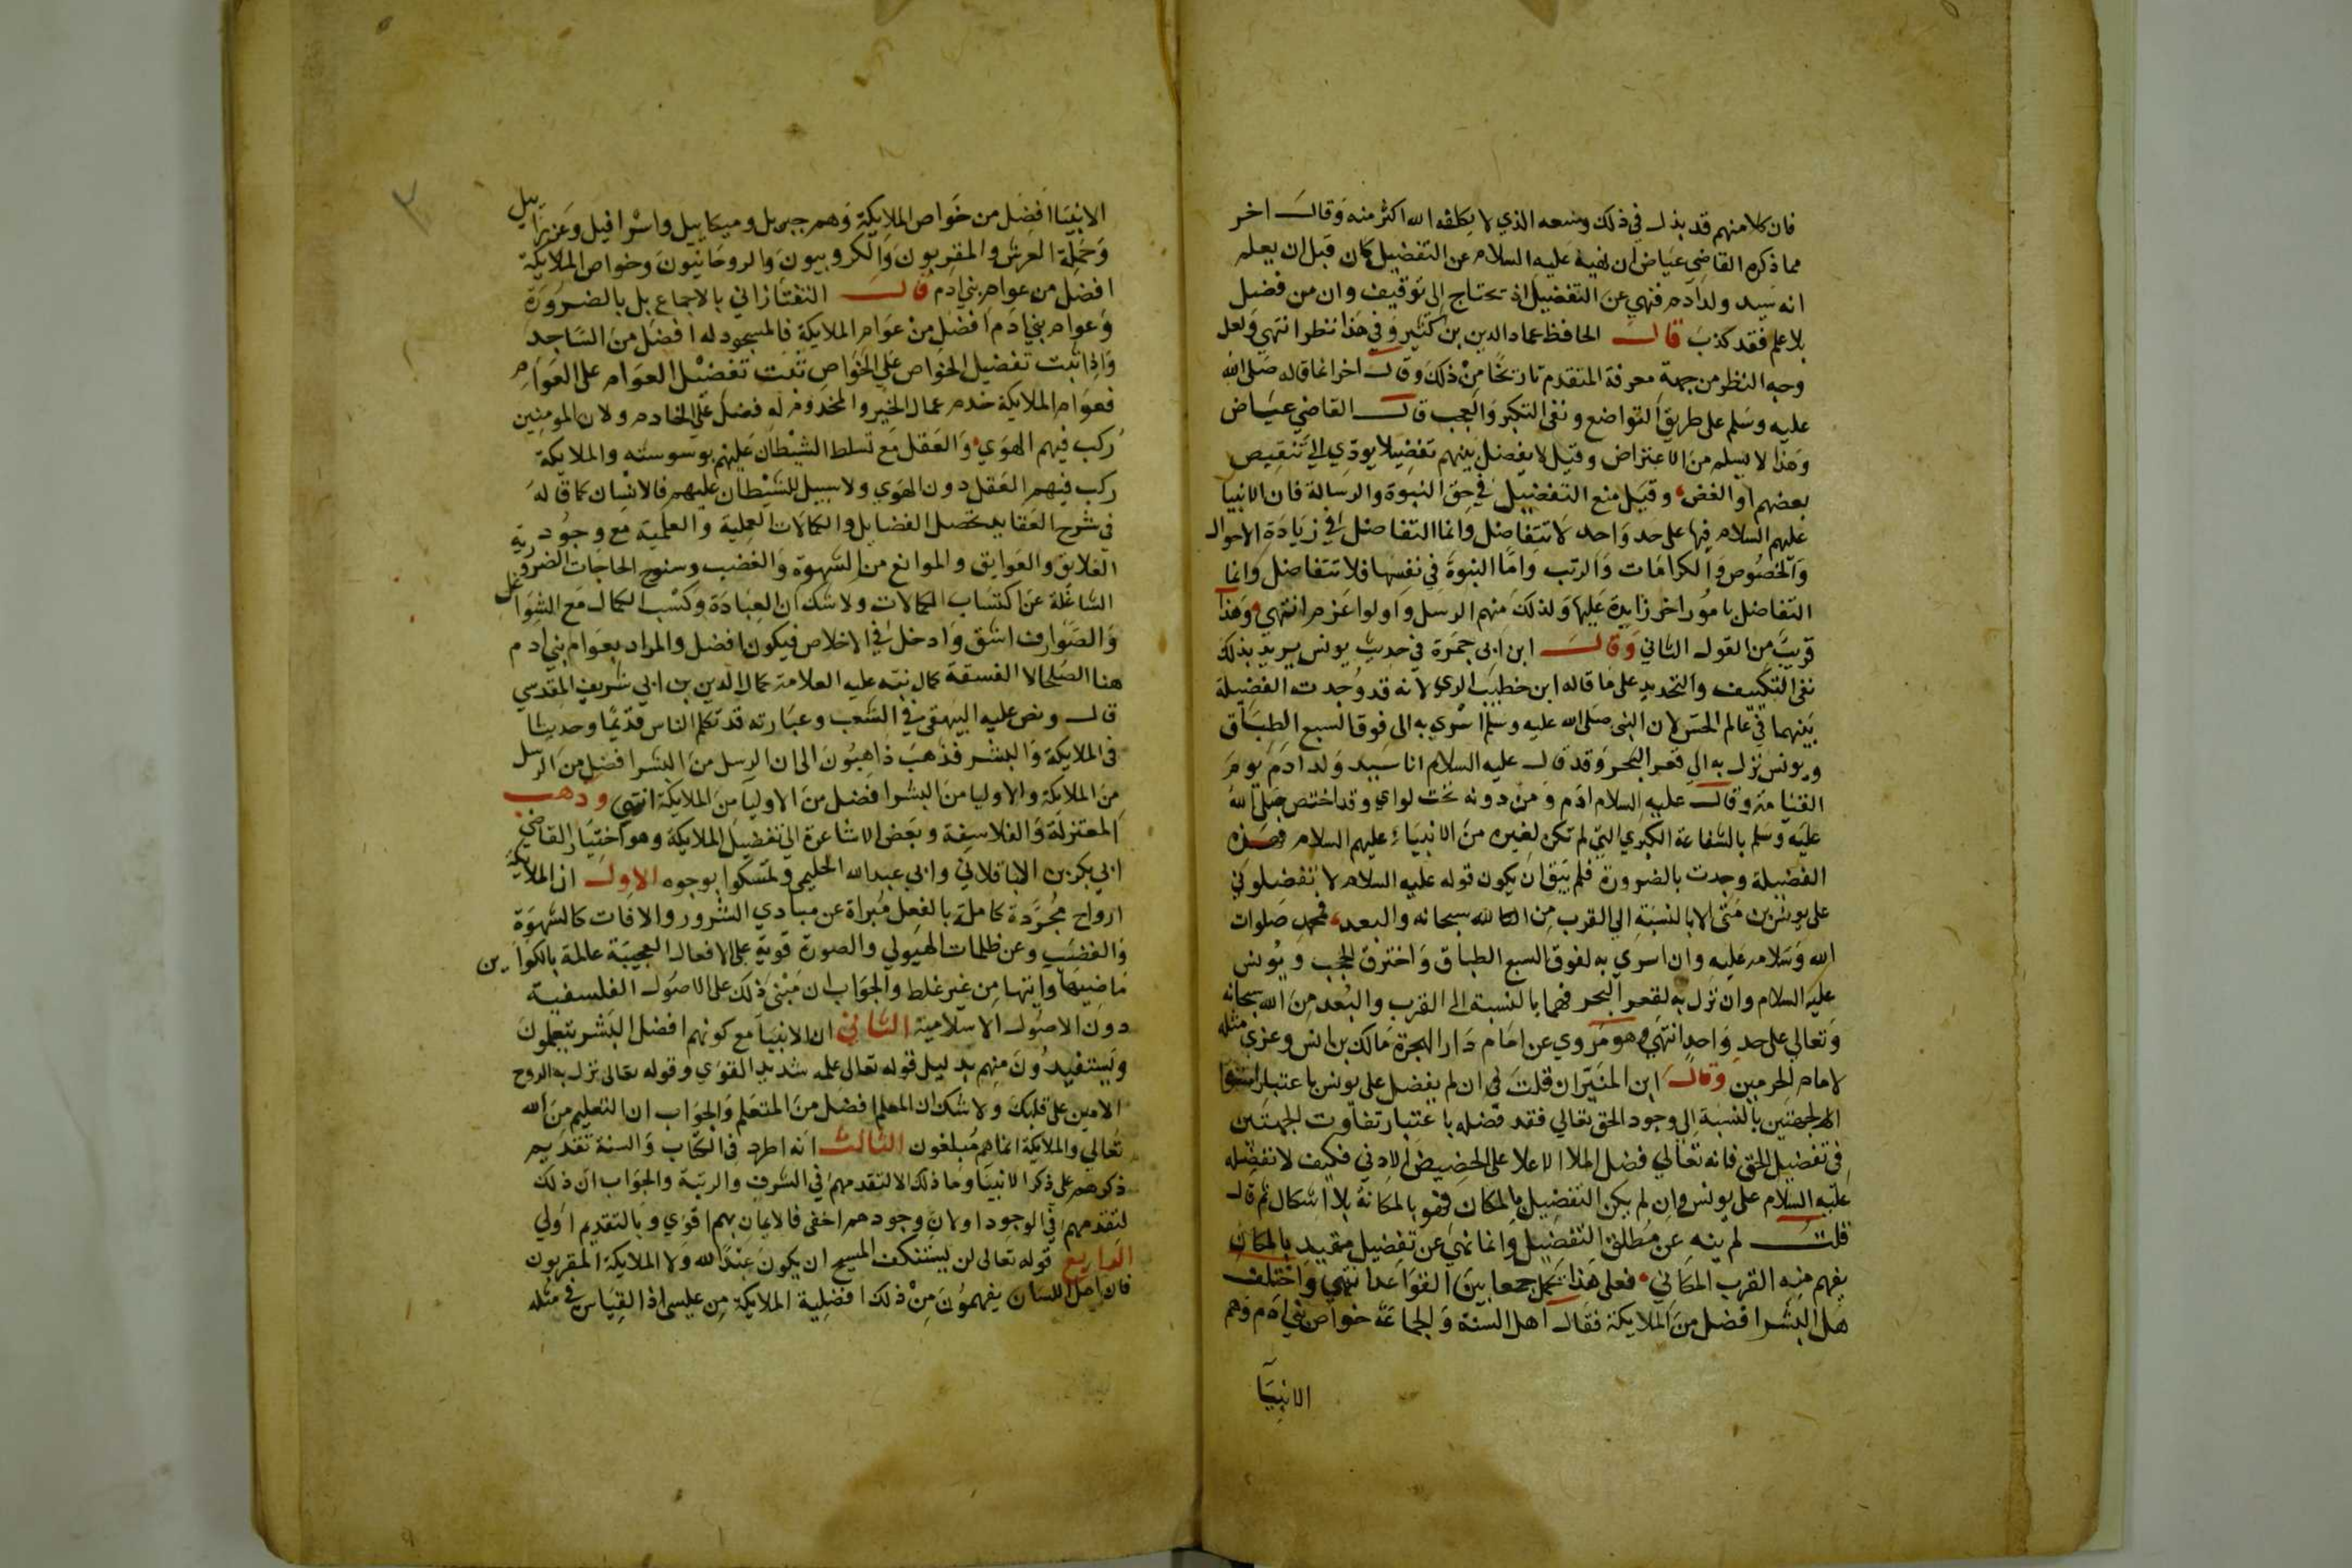 فان كلا منهم قد بذل في ذلك وسعه الذي لا يكلفه الله اكثر منه وقال اخر
مما ذكره القاضي عياض ان نهيه عليه السلام عن التفضيل كان قبل ان يعلم
انه سيد ولد آدم فنهي عن التفضيل اذ تحتاج الى توقيف وان من فضل
بلا علم فقد كذب قال الحافظ عماد الدين بن كثير وفي هذا نظر انتهي ولعل
وجه النظر من جهة معرفة المتقدم تاريخا من ذلك وقال اخر انما قاله صلى الله
عليه وسلم على طريق التواضع ونفى التكبر والعجب قال القاضي عياض
وهذا لا يسلم من الاعتراض وقيل لا يفضل بينهم تفضيلا يودي الي تنقيص
بعضهم او الغض وقيل منع التفضيل في حق النبوة والرسالة فان الانبيا
عليهم السلام فيها على حد واحد لا تتفاضل وانما التفاضل في زيادة الاحوال
والخصوص والكرامات والرتب واما النبوة في نفسها فلا تتفاضل وانما
التفاضل بامور اخر زايدة عليها ولذلك منهم الرسل واولوا عزم انتهي وهذا
قريب من القول الثاني وقال ابن ابي جمرة في حديث يونس يريد بذلك
نفى التكييف والتحديد على ما قاله ابن خطيب الري لانه قد وجدت الفضيلة
بينهما في عالم الحس لان النبى صلى الله عليه وسلم اسري به الى فوق السبع الطباق
ويونس نزل به الي قعر البحر وقد قال عليه السلام انا سيد ولد ادم يوم
القيامة وقال عليه السلام ادم ومن دونه تحت لواي وقد اختص صلى الله
عليه وسلم بالشفاعة الكبري التي لم تكن لغيره من الانبياء عليهم السلام فهذه
الفضيلة وجدت بالضرورة فلم يبق ان يكون قوله عليه السلام لا تفضلوني
على يونس بن متى الا بالنسبة الي القرب من الله سبحانه والبعد فمحمد صلوات
الله وسلامه عليه وان اسري به لفوق السبع الطباق واخترق الحجب ويونس
عليه السلام وان نزل به لقعر البحر فهما بالنسبة الى القرب والبعد من الله سبحانه
وتعالي على حد واحد انتهي وهو مروي عن امام دار الهجرة مالك بن انس وعزي مثله
لامام الحرمين وقال ابن المنير ان قلت في ان لم يفضل على يونس باعتبار استوا
الجهتين بالنسبة الى وجود الحق تعالي فقد فضله باعتبار تفاوت الجهتين
في تفضيل الحق فانه تعالي فضل الملا الاعلا على الحضيض الادني فكيف لا نفضله
عليه السلام على يونس وان لم يكن التفضيل بالمكان فهو بالمكانة بلا اشكال ثم قال
قلت لم ينه عن مطلق التفضيل وانما نهى عن تفضيل مقيد بالمكان
يفهم منه القرب المكاني فعلى هذا يحمل جمعا بين القواعد انتهي واختلف
هل البشر افضل من الملايكة فقال اهل السنة والجماعة خواص بني ادم وهم
الانبيا
الانبيا افضل من خواص الملايكة وهم جبريل وميكاييل واسرافيل وعزراييل
وحملة العرش والمقربون والكروبيون والروحانيون وخواص الملايكة
افضل من عوام بني ادم قال التفتازاني بالاجماع بل بالضرورة
وعوام بني ادم افضل من عوام الملايكة فالمسجود له افضل من الساجد
واذا ثبت تفضيل الخواص علي الخواص ثبت تفضيل العوام على العوام
فعوام الملايكة خدم عمال الخير والمخدوم له فضل علي الخادم ولان المومنين
ركب فيهم الهوي والعقل مع تسلط الشيطان عليهم بوسوسته والملايكة
ركب فيهم العقل دون الهوي ولا سبيل للشيطان عليهم فالانسان كما قاله
في شرح العقايد تحصل الفضايل والكمالات العملية والعلمية مع وجود
العلايق والعوايق والموانع من الشهوة والغضب وسنوح الحاجات الضرورية
الشاغلة عن اكتساب الكمالات ولا شك ان العبادة وكسب الكمال مع الشواغل
والصوارف اشق وادخل في الاخلاص فيكون افضل والمراد بعوام بني ادم
هنا الصلحا لا الفسقة كما نبه عليه العلامة كمال الدين بن ابي شريف المقدسي
قال ونص عليه البيهقي في الشعب وعبارته قد تكلم الناس قديما وحديثا
في الملايكة والبشر فذهب ذاهبون الى ان الرسل من البشر افضل من الرسل
من الملايكة والاوليا من البشر افضل من الاوليا من الملايكة انتهي وذهب
المعتزلة والفلاسفة وبعض الاشاعرة الي تفضيل الملايكة وهو اختيار القاضي
ابي بكر بن الباقلاني وابي عبد الله الحليمي وتمسكوا بوجوه الاول ان الملايكة
ارواح مجردة كاملة بالفعل مبراة عن مبادي الشرور والافات كالشهوة
والغضب وعن ظلمات الهيولي والصورة قوية على الافعال العجيبة عالمة بالكواين
ماضيها واتيها من غير غلط والجواب ان مبنى ذلك على الاصول الفلسفية
دون الاصول الاسلامية الثاني ان الانبيا مع كونهم افضل البشر يتعلمون
ويستفيدون منهم بدليل قوله تعالى علمه شديد القوي وقوله تعالى نزل به الروح
الامين على قلبك ولا شك ان المعلم افضل من المتعلم والجواب ان التعليم من الله
تعالي والملايكة انما هم مبلغون الثالث انه اطرد في الكتاب والسنة تقديم
ذكرهم على ذكر الانبيا وما ذلك الا لتقدمهم في الشرف والرتبة والجواب ان ذلك
لتقدمهم في الوجود او لان وجودهم اخفى فالايمان بهم اقوي وبالتقديم اولي
الرابع قوله تعالى لن يستنكف المسيح ان يكون عبدا لله ولا الملايكة المقربون
فان اهل اللسان يفهمون من ذلك افضلية الملايكة من عيسى اذ القياس في مثله